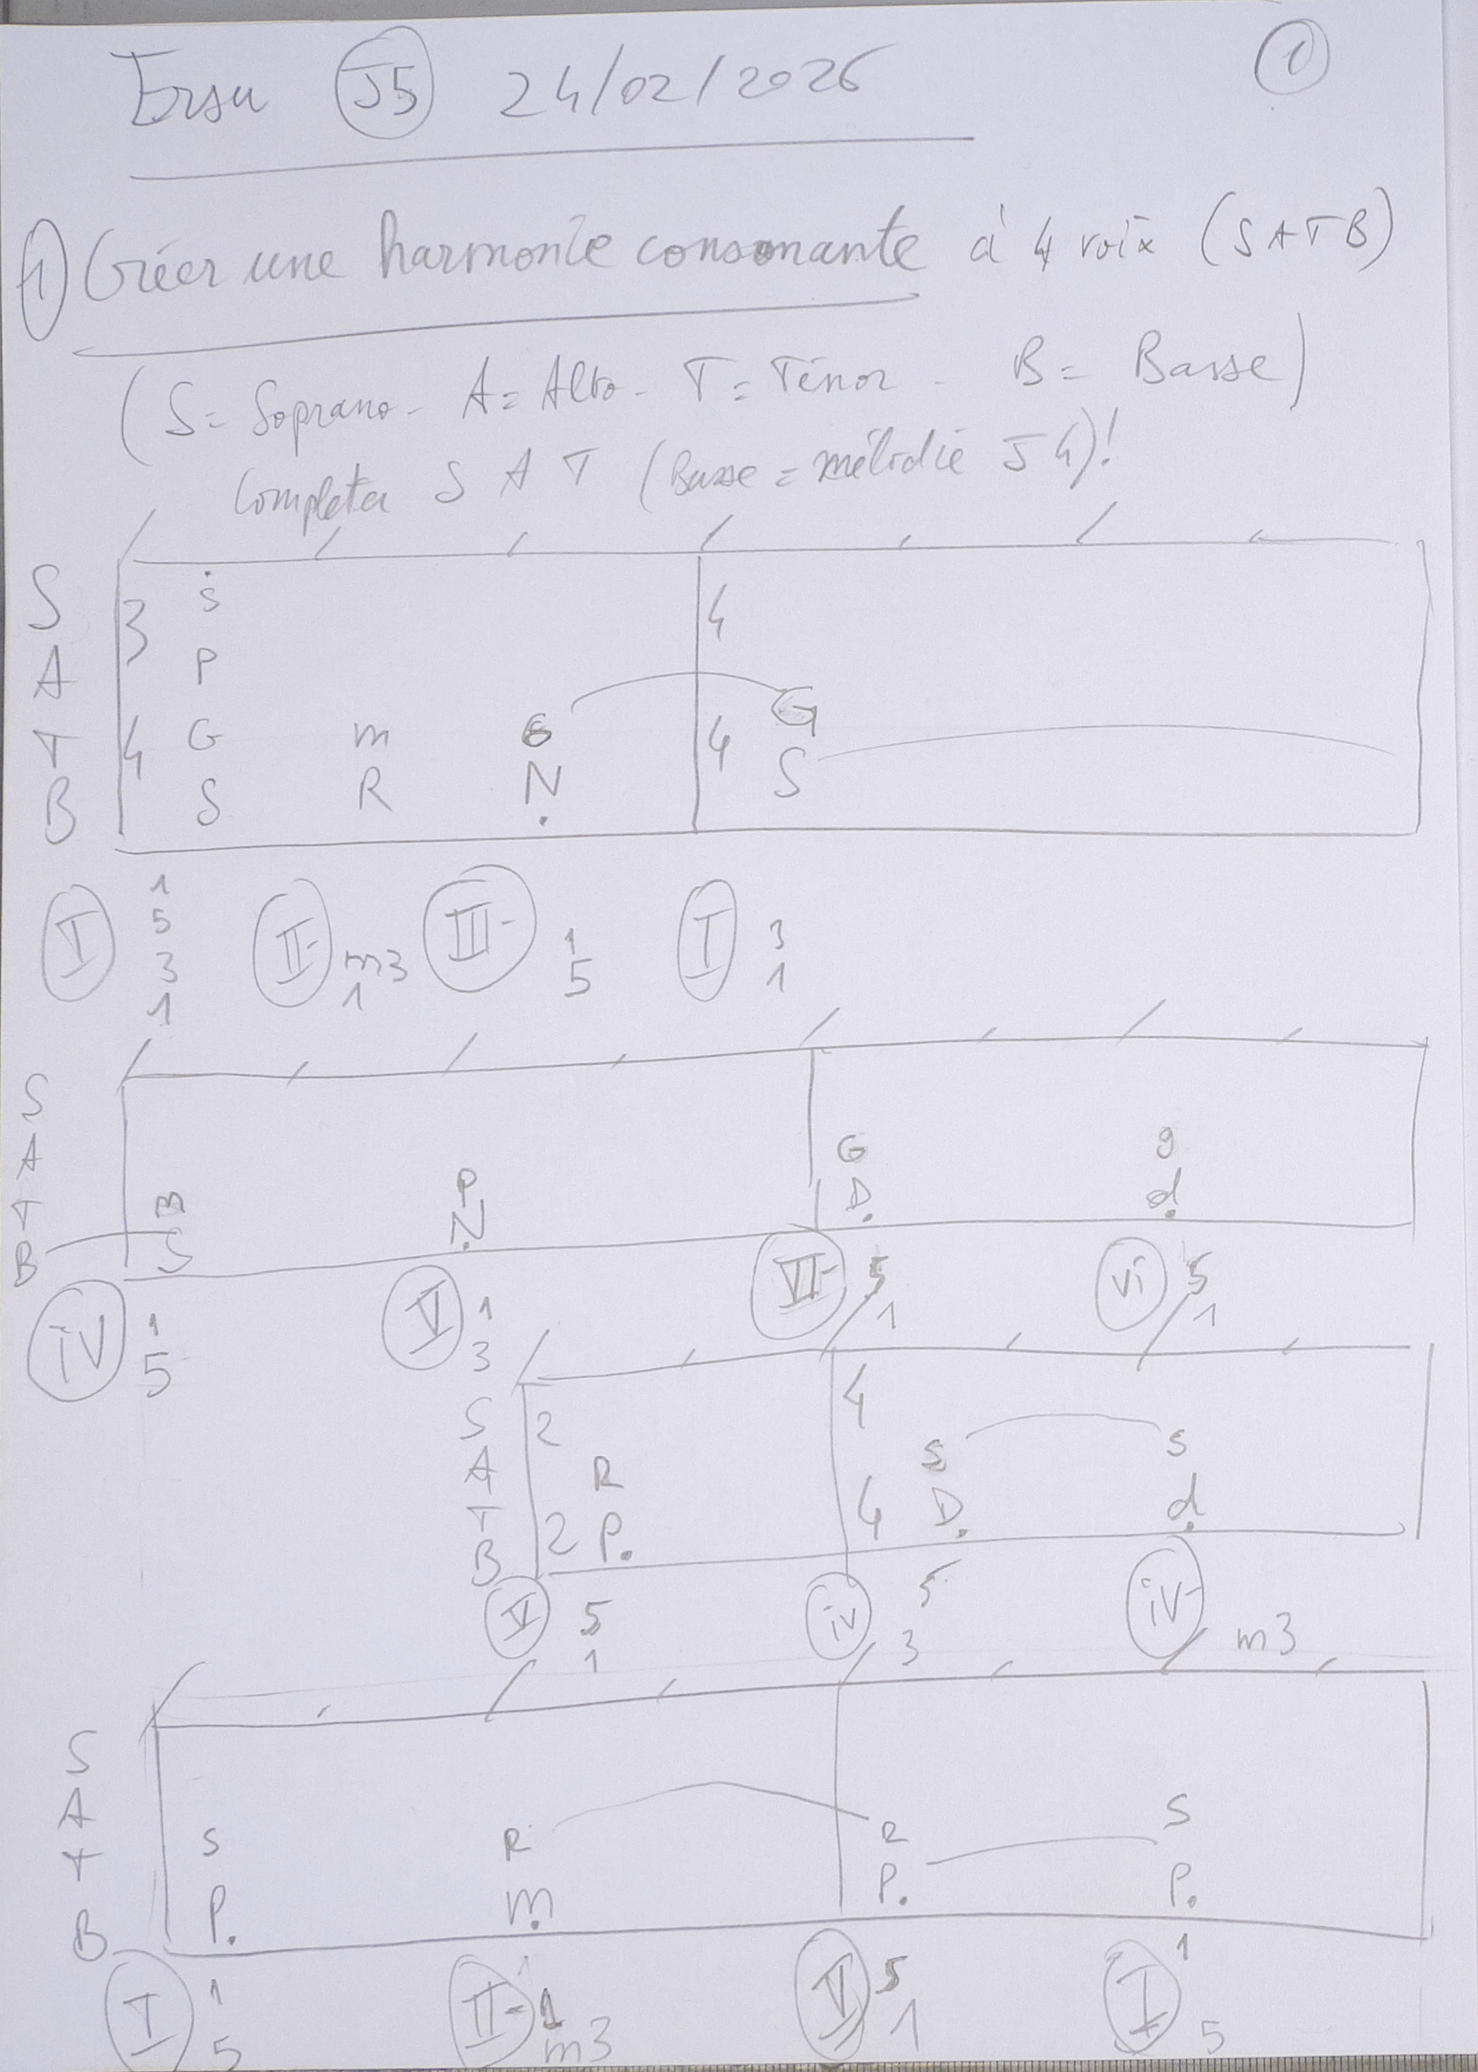 Ersu J5 24/02/2026 1
1 Créer une harmonie consonante à 4 voix (SATB)
(S= Soprano - A= Alto - T= Ténor - B= Basse)
Completer S A T (Basse = mélodie J4)!
S 3 S 4
A P
T 4 G m G 4 G
B S R N S
I 1 5 3 1 II- m3 1 III- 1 5 I 3 1
S
A
T B P G g
B S N D d
IV 1 5 V 1 3 VI- 5 1 vi 5 1
S 2 4
A R S S
T
B 2 P 4 D d
V 5 1 iv 5 3 iv- m3
S
A
T S R R S
B P m P P
I 1 5 II- 1 m3 V 5 1 I 1 5